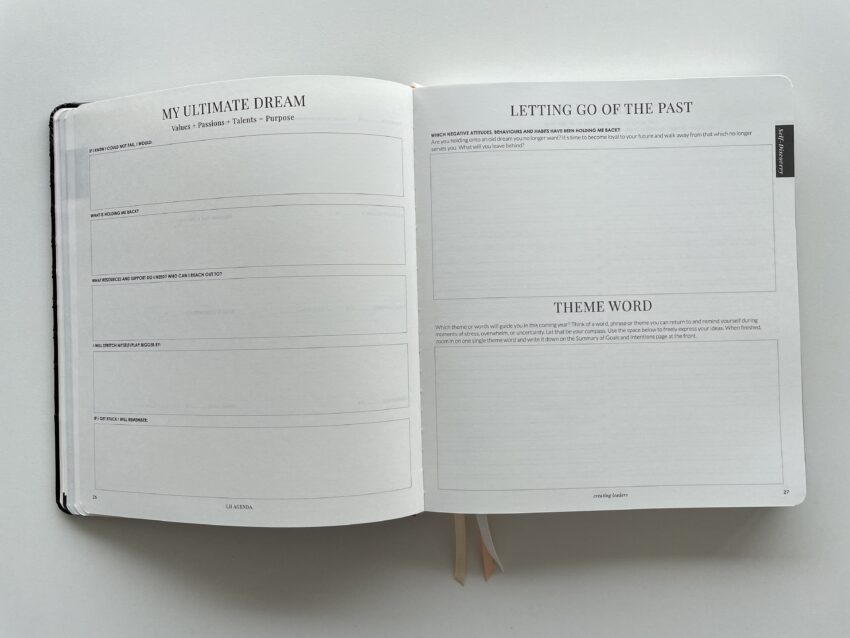 MY ULTIMATE DREAM
Values + Passions + Talents = Purpose
IF I KNEW I COULD NOT FAIL, I WOULD:
WHAT IS HOLDING ME BACK?
WHAT RESOURCES AND SUPPORT DO I NEED? WHO CAN I REACH OUT TO?
I WILL STRETCH MYSELF/PLAY BIGGER BY:
IF I GET STUCK I WILL REMEMBER:
26
LH AGENDA
LETTING GO OF THE PAST
WHICH NEGATIVE ATTITUDES, BEHAVIOURS AND HABITS HAVE BEEN HOLDING ME BACK?
Are you holding onto an old dream you no longer want? It's time to become loyal to your future and walk away from that which no longer
serves you. What will you leave behind?
Self-Discovery
THEME WORD
Which theme or words will guide you in this coming year? Think of a word, phrase or theme you can return to and remind yourself during
moments of stress, overwhelm, or uncertainty. Let that be your compass. Use the space below to freely express your ideas. When finished,
zoom in on one single theme word and write it down on the Summary of Goals and Intentions page at the front.
creating leaders
27